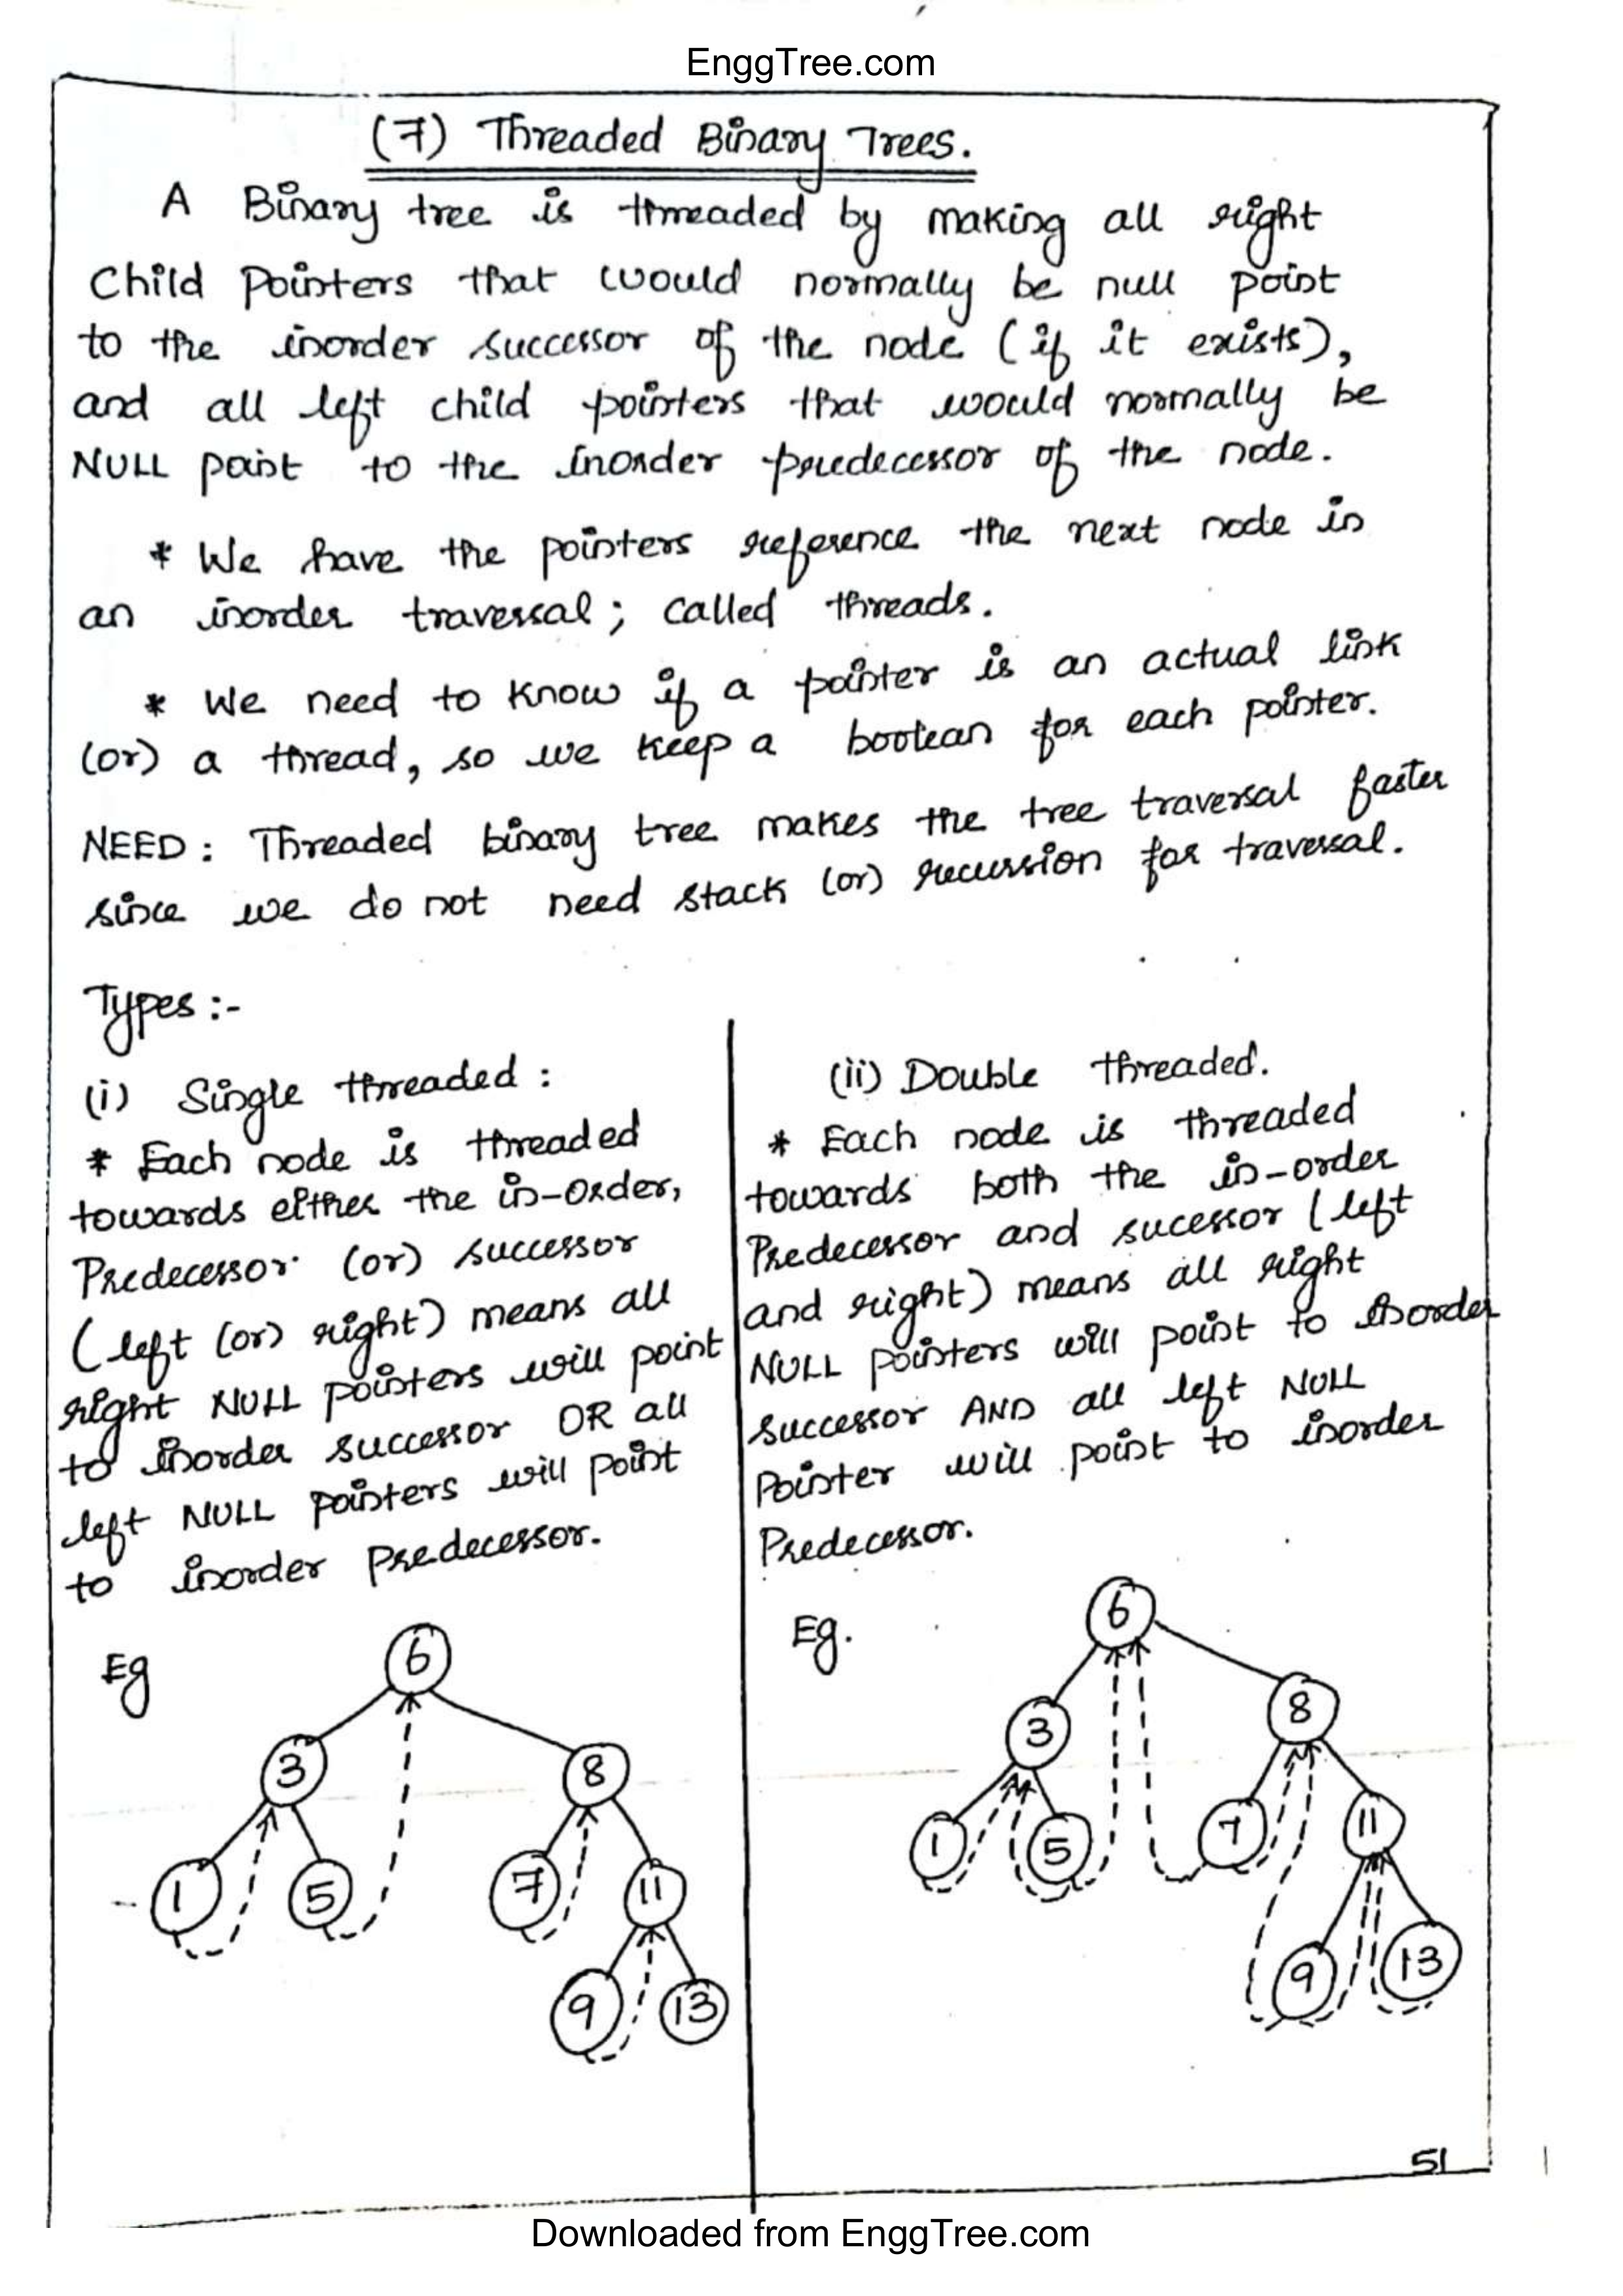 EnggTree.com
(7) Threaded Binary Trees.
A Binary tree is threaded by making all right
Child Pointers that would normally be null point
to the inorder successor of the node (if it exists),
and all left child pointers that would normally be
NULL point to the inorder predecessor of the node.
* We have the pointers reference the next node in
an inorder traversal; called threads.
* We need to know if a pointer is an actual link
(or) a thread, so we keep a boolean for each pointer.
NEED: Threaded binary tree makes the tree traversal faster
since we do not need stack (or) recursion for traversal.
Types :-
(i) Single threaded :
* Each node is threaded
towards either the in-order,
Predecessor (or) successor
(left (or) right) means all
right NULL pointers will point
to inorder successor OR all
left NULL pointers will point
to inorder predecessor.
Eg
6
3
8
1
5
7
11
9
13
(ii) Double threaded.
* Each node is threaded
towards both the in-order
Predecessor and sucessor (left
and right) means all right
NULL pointers will point to inorder
successor AND all left NULL
Pointer will point to inorder
Predecessor.
Eg.
6
3
8
1
5
7
11
9
13
51
Downloaded from EnggTree.com